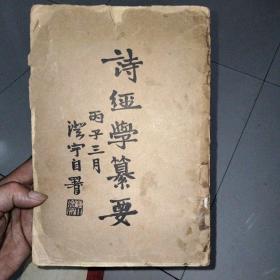 詩經學纂要
丙子三月
澄宇自署